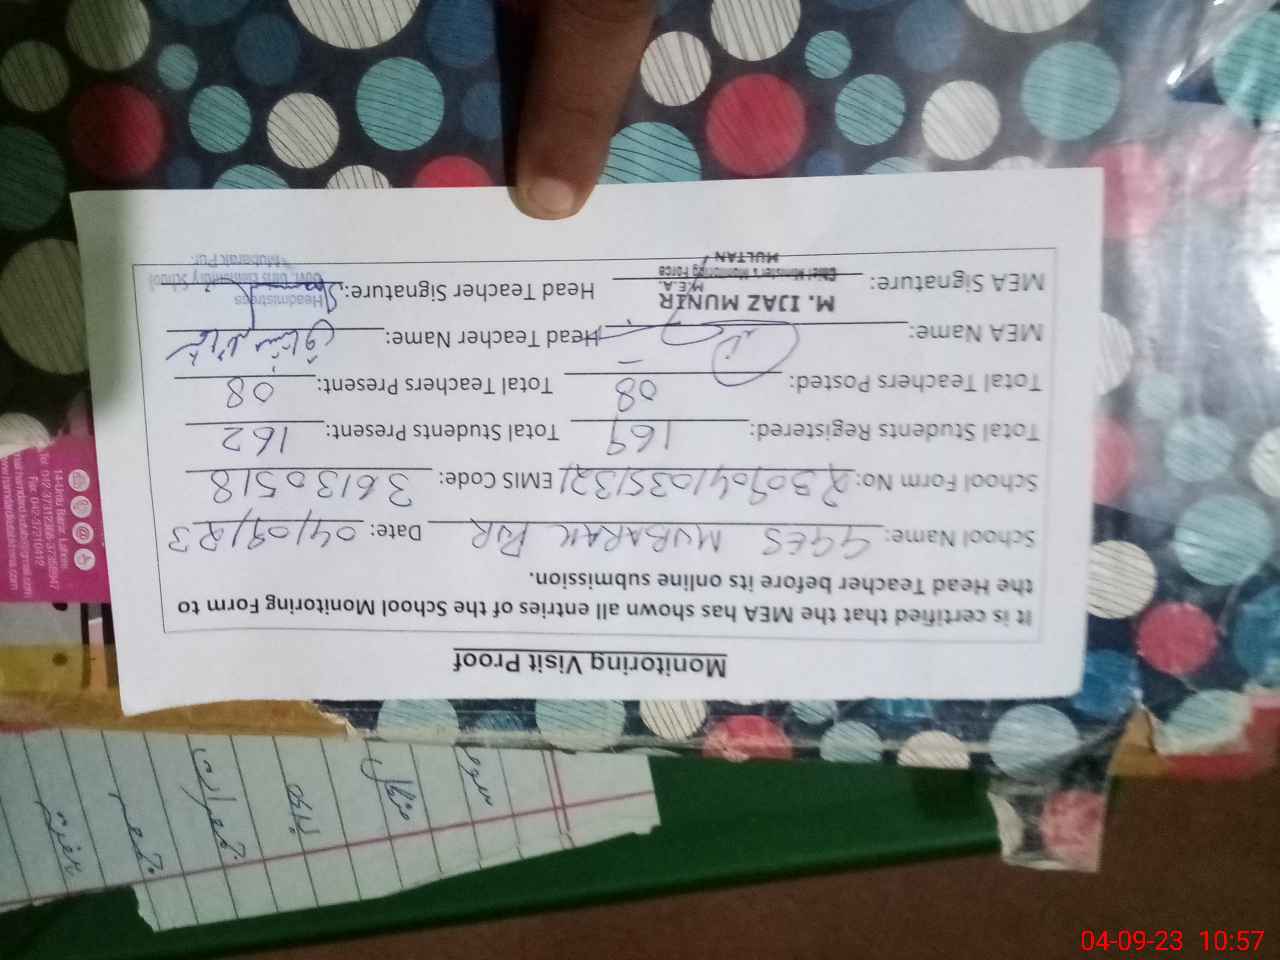 Monitoring Visit Proof
It is certified that the MEA has shown all entries of the School Monitoring Form to
the Head Teacher before its online submission.
School Name: GGES MUBARAK PUR Date: 04/09/23
School Form No: 23090410351321 EMIS Code: 36130518
Total Students Registered: 169 Total Students Present: 162
Total Teachers Posted: 08 Total Teachers Present: 08
MEA Name: Head Teacher Name:
M. IJAZ MUNIR
M.E.A.
Chief Minister's Monitoring Force
MULTAN
MEA Signature: Head Teacher Signature:
Headmistress
Govt. Girls Elementary School
Mubarak Pur
14-Urdu Bazar Lahore
04-09-23 10:57